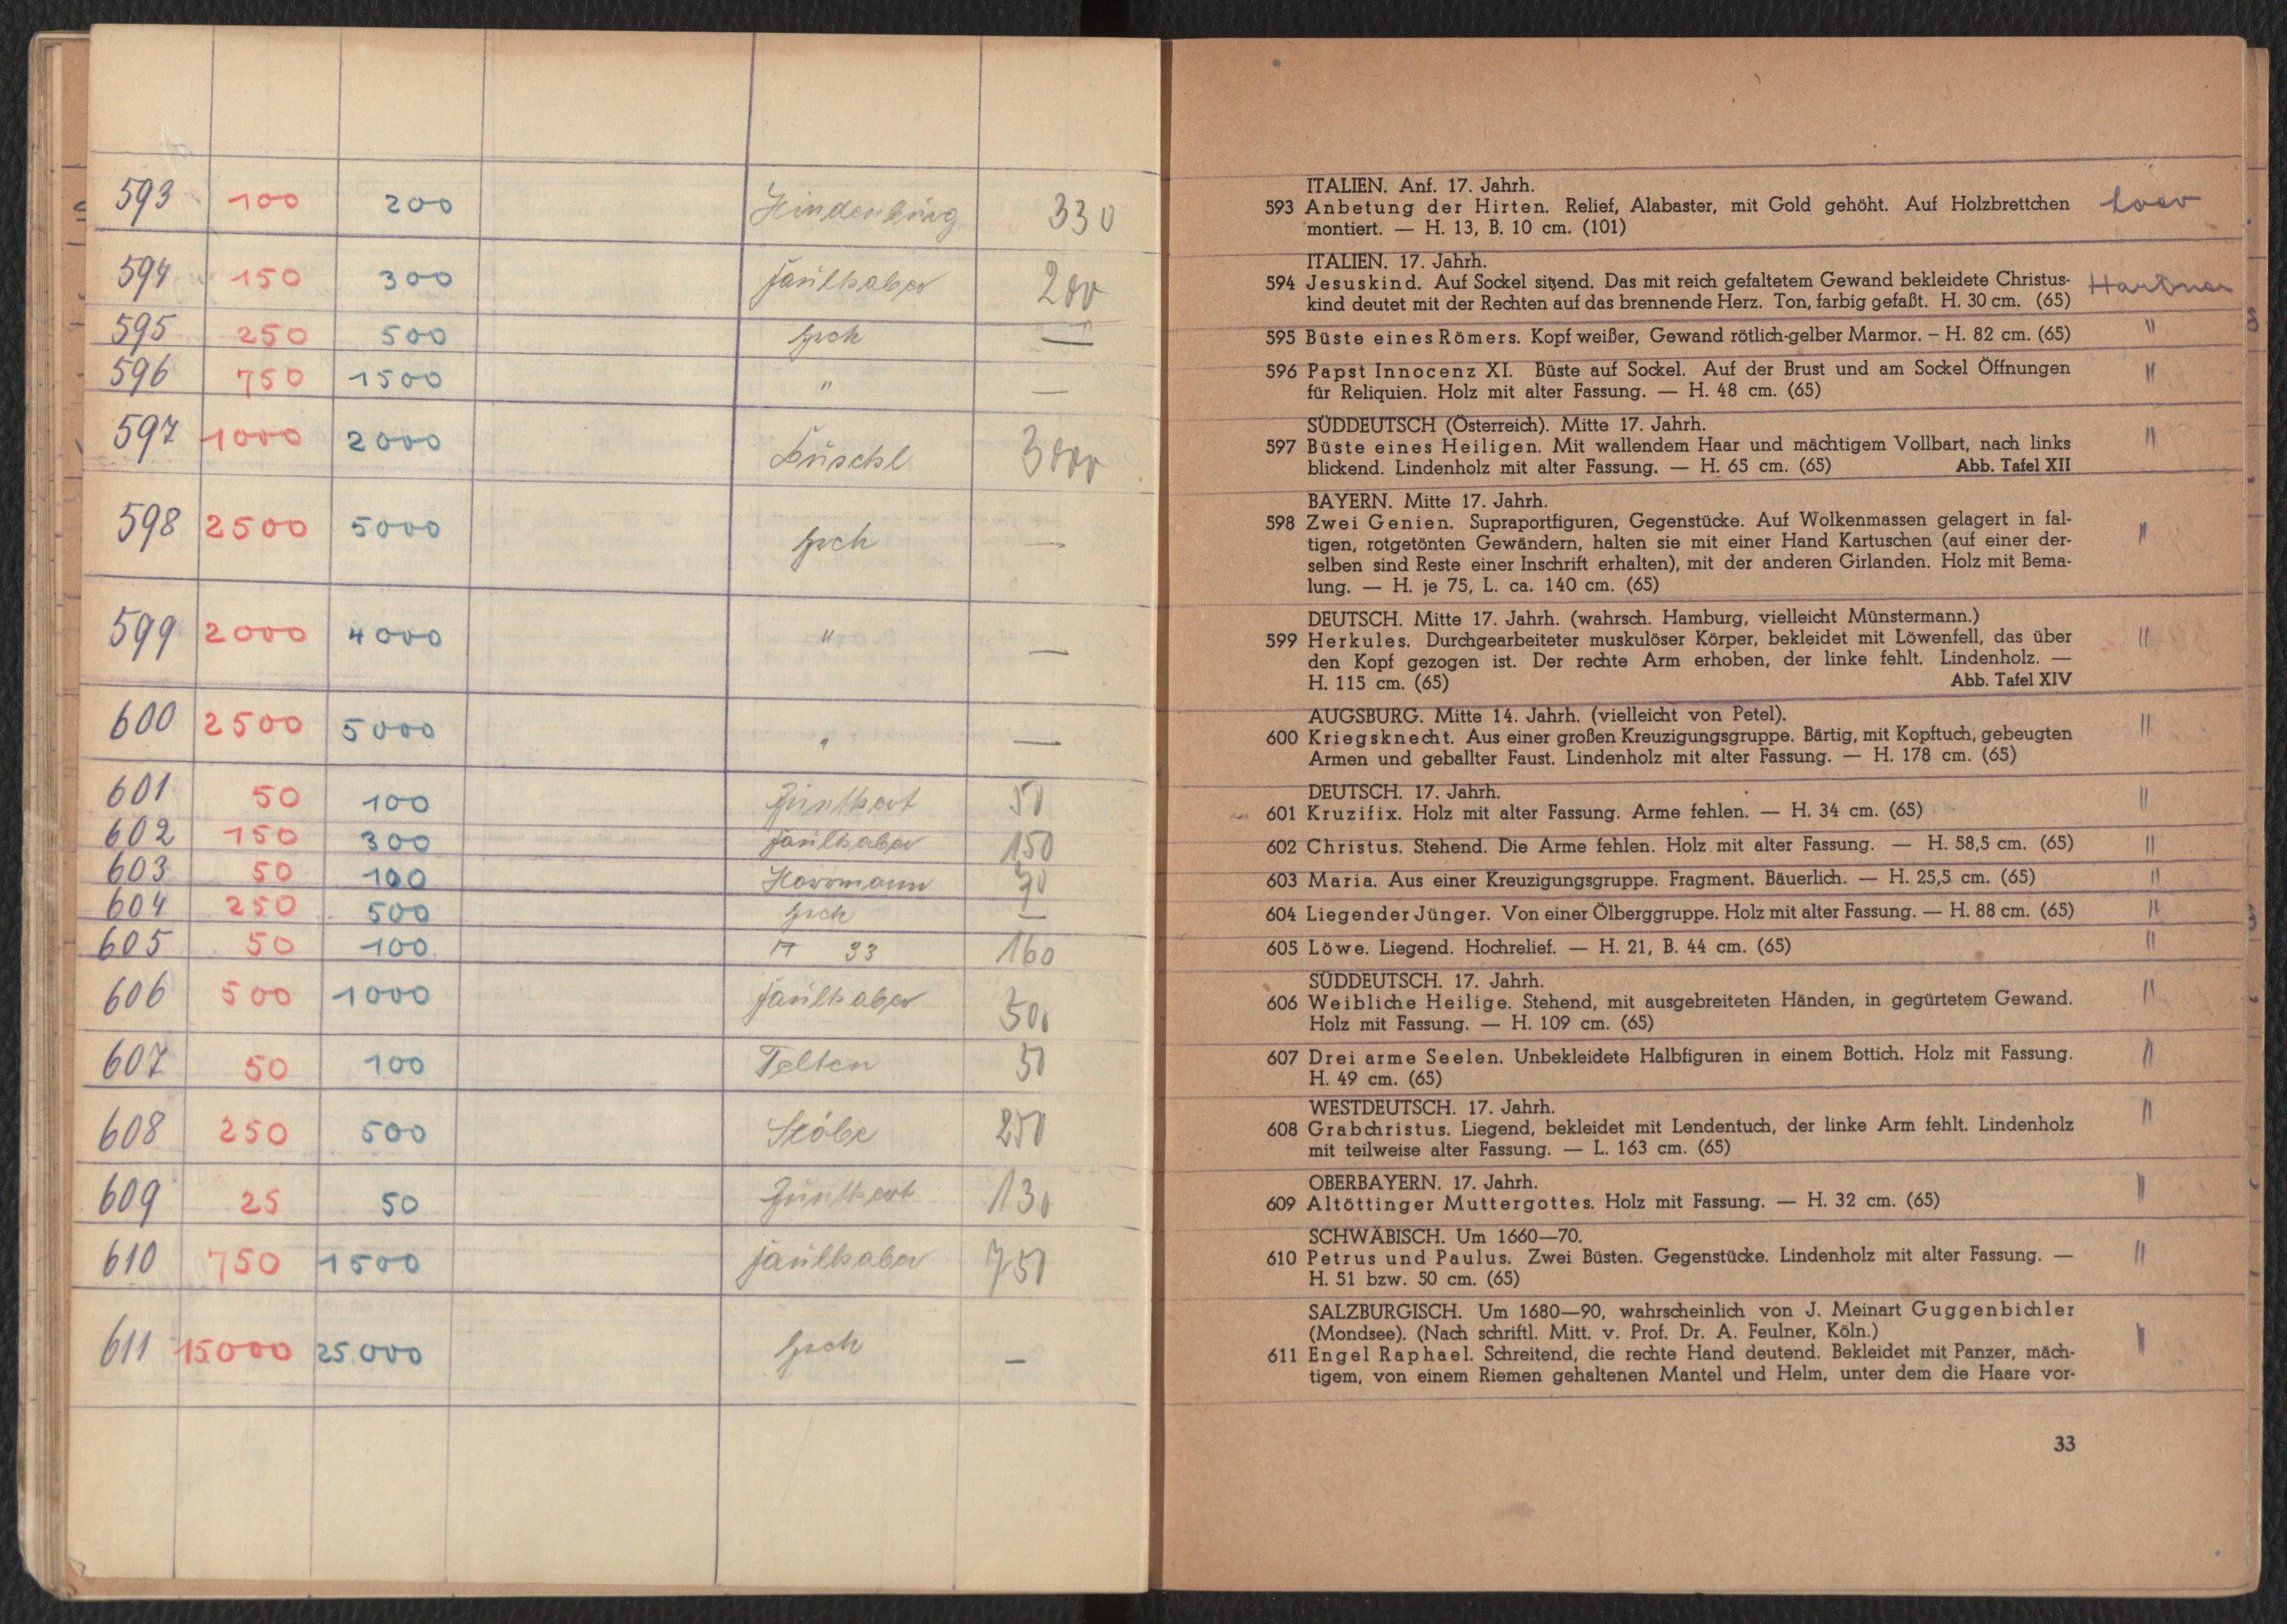 593 100 200 Hindenburg 330
594 150 300 Faulhaber 200
595 250 500 —
596 750 1500 " —
597 1000 2000 3000
598 2500 5000 —
599 2000 4000 " —
600 2500 5000 " —
601 50 100 50
602 150 300 Faulhaber 150
603 50 100 Horrmann
604 250 500 —
605 50 100 33 160
606 500 1000 Faulhaber 500
607 50 100 50
608 250 500 250
609 25 50 130
610 750 1500 Faulhaber 750
611 15000 25.000 —
ITALIEN. Anf. 17. Jahrh.
593 Anbetung der Hirten. Relief, Alabaster, mit Gold gehöht. Auf Holzbrettchen
montiert. — H. 13, B. 10 cm. (101)
ITALIEN. 17. Jahrh.
594 Jesuskind. Auf Sockel sitzend. Das mit reich gefaltetem Gewand bekleidete Christus- Hartner
kind deutet mit der Rechten auf das brennende Herz. Ton, farbig gefaßt. H. 30 cm. (65)
595 Büste eines Römers. Kopf weißer, Gewand rötlich-gelber Marmor. – H. 82 cm. (65) "
596 Papst Innocenz XI. Büste auf Sockel. Auf der Brust und am Sockel Öffnungen "
für Reliquien. Holz mit alter Fassung. — H. 48 cm. (65)
SÜDDEUTSCH (Österreich). Mitte 17. Jahrh.
597 Büste eines Heiligen. Mit wallendem Haar und mächtigem Vollbart, nach links "
blickend. Lindenholz mit alter Fassung. — H. 65 cm. (65) Abb. Tafel XII
BAYERN. Mitte 17. Jahrh.
598 Zwei Genien. Supraportfiguren, Gegenstücke. Auf Wolkenmassen gelagert in fal- "
tigen, rotgetönten Gewändern, halten sie mit einer Hand Kartuschen (auf einer der-
selben sind Reste einer Inschrift erhalten), mit der anderen Girlanden. Holz mit Bema-
lung. — H. je 75, L. ca. 140 cm. (65)
DEUTSCH. Mitte 17. Jahrh. (wahrsch. Hamburg, vielleicht Münstermann.)
599 Herkules. Durchgearbeiteter muskulöser Körper, bekleidet mit Löwenfell, das über "
den Kopf gezogen ist. Der rechte Arm erhoben, der linke fehlt. Lindenholz. —
H. 115 cm. (65) Abb. Tafel XIV
AUGSBURG. Mitte 14. Jahrh. (vielleicht von Petel).
600 Kriegsknecht. Aus einer großen Kreuzigungsgruppe. Bärtig, mit Kopftuch, gebeugten "
Armen und geballter Faust. Lindenholz mit alter Fassung. — H. 178 cm. (65)
DEUTSCH. 17. Jahrh.
601 Kruzifix. Holz mit alter Fassung. Arme fehlen. — H. 34 cm. (65) "
602 Christus. Stehend. Die Arme fehlen. Holz mit alter Fassung. — H. 58,5 cm. (65) "
603 Maria. Aus einer Kreuzigungsgruppe. Fragment. Bäuerlich. — H. 25,5 cm. (65) "
604 Liegender Jünger. Von einer Ölberggruppe. Holz mit alter Fassung. — H. 88 cm. (65) "
605 Löwe. Liegend. Hochrelief. — H. 21, B. 44 cm. (65) "
SÜDDEUTSCH. 17. Jahrh.
606 Weibliche Heilige. Stehend, mit ausgebreiteten Händen, in gegürtetem Gewand. "
Holz mit Fassung. — H. 109 cm. (65)
607 Drei arme Seelen. Unbekleidete Halbfiguren in einem Bottich. Holz mit Fassung. "
H. 49 cm. (65)
WESTDEUTSCH. 17. Jahrh.
608 Grabchristus. Liegend, bekleidet mit Lendentuch, der linke Arm fehlt. Lindenholz "
mit teilweise alter Fassung. — L. 163 cm. (65)
OBERBAYERN. 17. Jahrh.
609 Altöttinger Muttergottes. Holz mit Fassung. — H. 32 cm. (65) "
SCHWÄBISCH. Um 1660—70.
610 Petrus und Paulus. Zwei Büsten. Gegenstücke. Lindenholz mit alter Fassung. — "
H. 51 bzw. 50 cm. (65)
SALZBURGISCH. Um 1680—90, wahrscheinlich von J. Meinart Guggenbichler
(Mondsee). (Nach schriftl. Mitt. v. Prof. Dr. A. Feulner, Köln.)
611 Engel Raphael. Schreitend, die rechte Hand deutend. Bekleidet mit Panzer, mäch- "
tigem, von einem Riemen gehaltenen Mantel und Helm, unter dem die Haare vor-
33